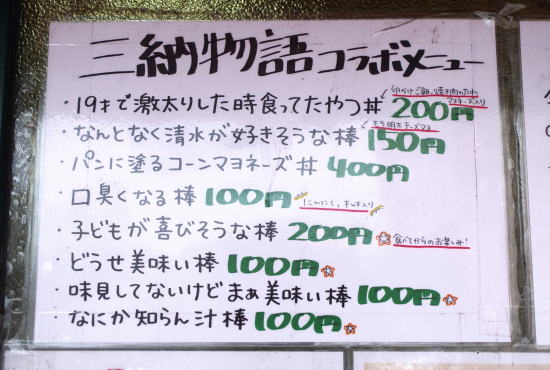 三納物語コラボメニュー
・19才で激太りした時食ってたやつ丼 200円 卵かけご飯、焼き肉のたれ
マヨネーズ入り
・なんとなく清水が好きそうな棒 150円 もち明太チーズマヨ
・パンに塗るコーンマヨネーズ丼 400円
・口臭くなる棒 100円 にんにく、キムチ入り
・子どもが喜びそうな棒 200円 食べてからのお楽しみ!
・どうせ美味い棒 100円
・味見してないけどまぁ美味い棒 100円
・なにか知らん汁棒 100円